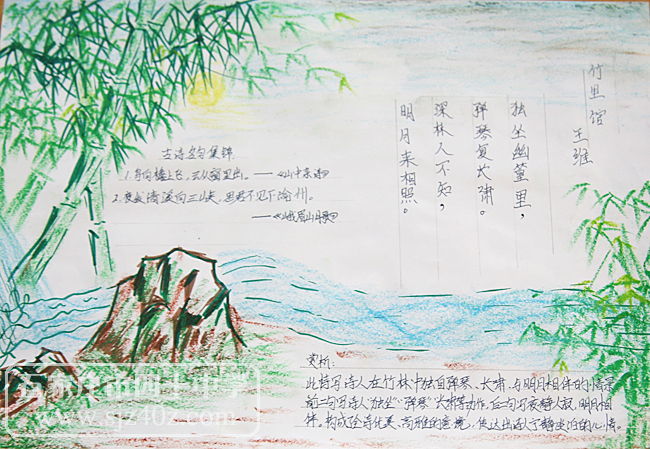 竹里馆
王维
独坐幽篁里，
弹琴复长啸。
深林人不知，
明月来相照。
古诗名句集锦
1.鸟向檐上飞，云从窗里出。——《山中杂诗》
2.夜发清溪向三峡，思君不见下渝州。
——《峨眉山月歌》
赏析：
此诗写诗人在竹林中独自弹琴、长啸、与明月相伴的情景
前二句写诗人"独坐""弹琴""长啸"等动作，后二句写夜静人寂，明月相
伴。构成全诗优美、高雅的意境，传达出诗人宁静淡泊的心情。
石家庄市四十中学
www.sjz40z.com